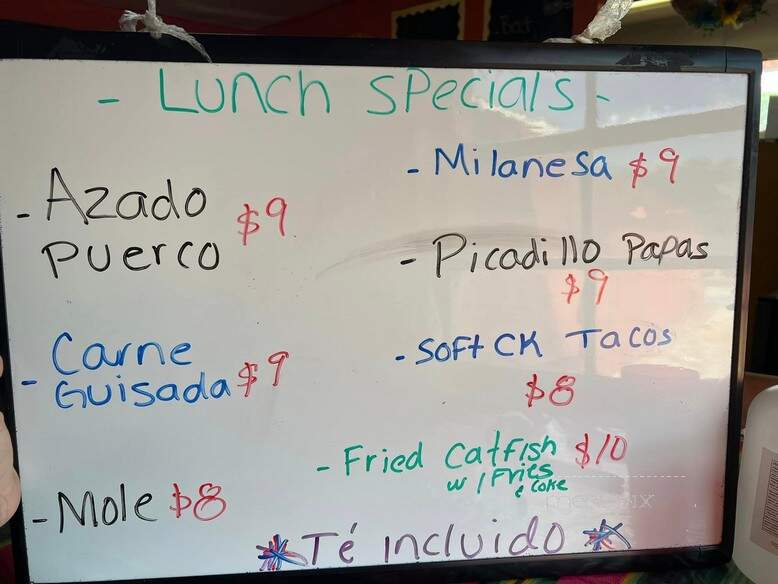 - Lunch Specials -
- Azado $9
Puerco
Carne
- Guisada $9
- Mole $8
- Milanesa $9
- Picadillo Papas
$9
- Soft CK Tacos
$8
- Fried Catfish $10
w/ Fries
& Coke
Té incluido